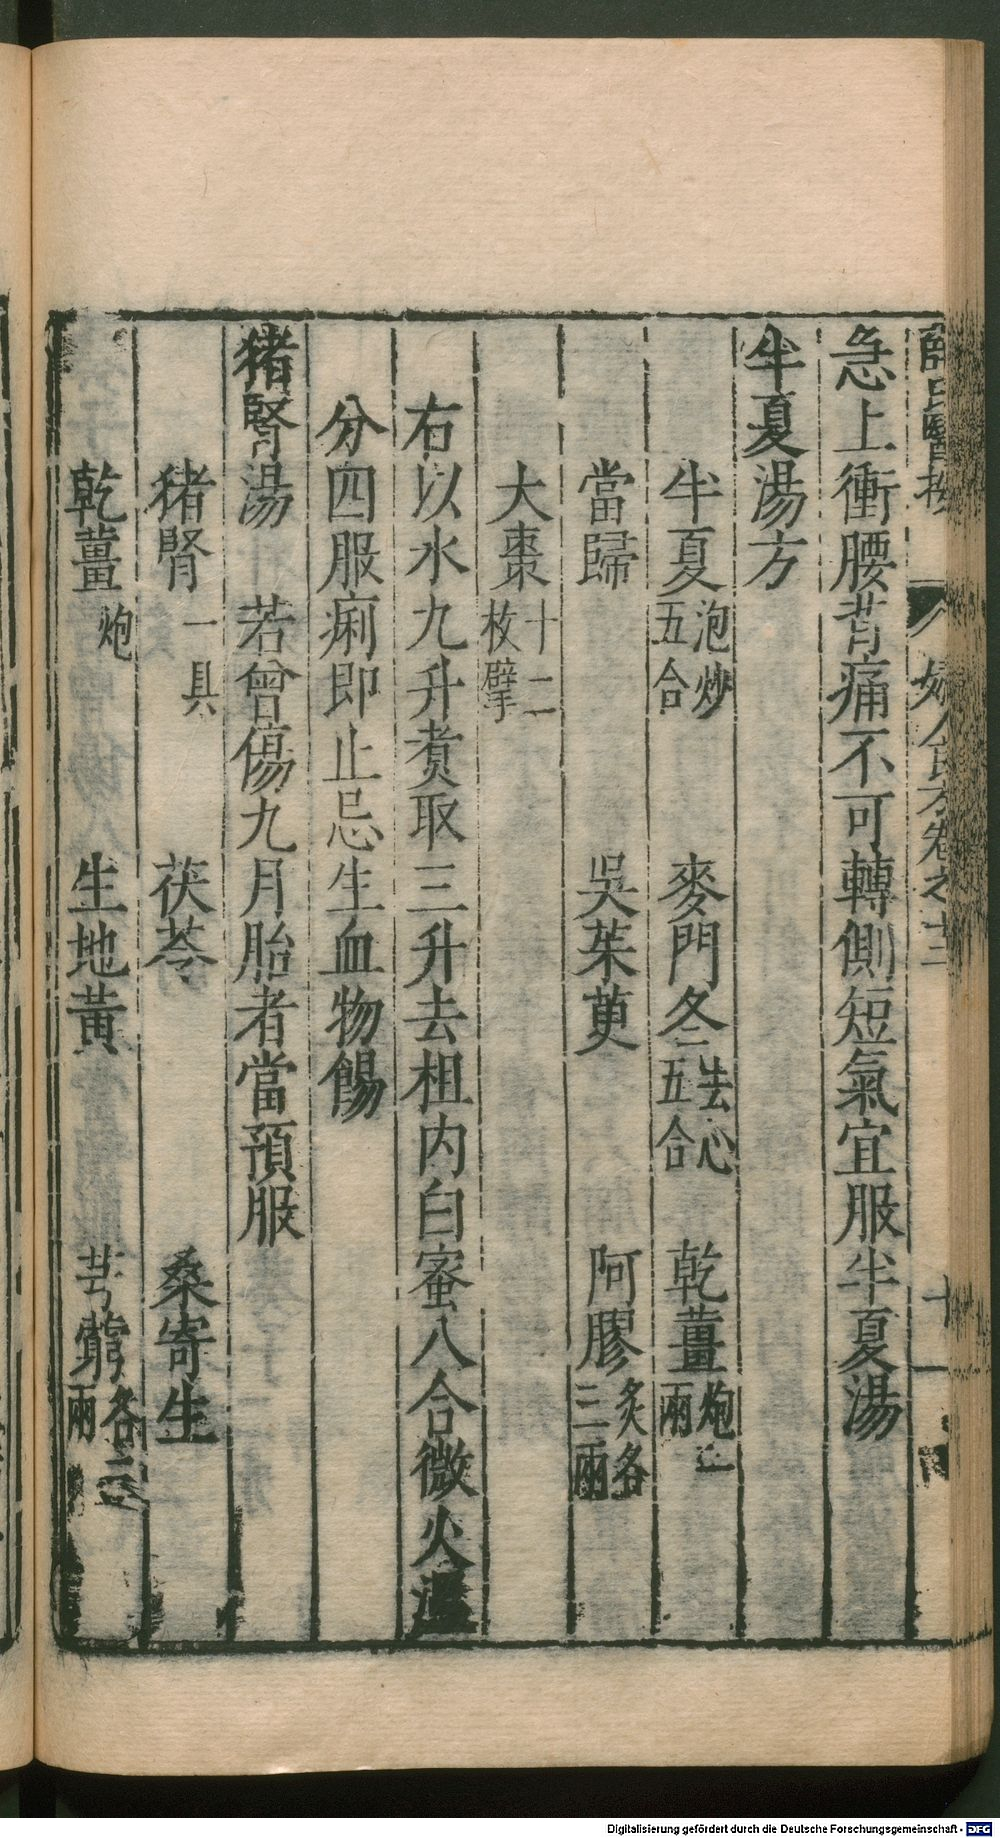 薛氏醫按 婦人良方卷之十二 十一
急上衝腰背痛不可轉側短氣宜服半夏湯
半夏湯方
半夏泡炒五合 麥門冬去心五合 乾薑炮一兩
當歸 吳茱萸 阿膠炙各三兩
大棗十二枚擘
右以水九升煑取三升去柤内白蜜八合微火溫
分四服痢即止忌生血物餳
猪腎湯 若曾傷九月胎者當預服
猪腎一具 茯苓 桑寄生
乾薑炮 生地黄 芎藭各三兩
Digitalisierung gefördert durch die Deutsche Forschungsgemeinschaft - DFG